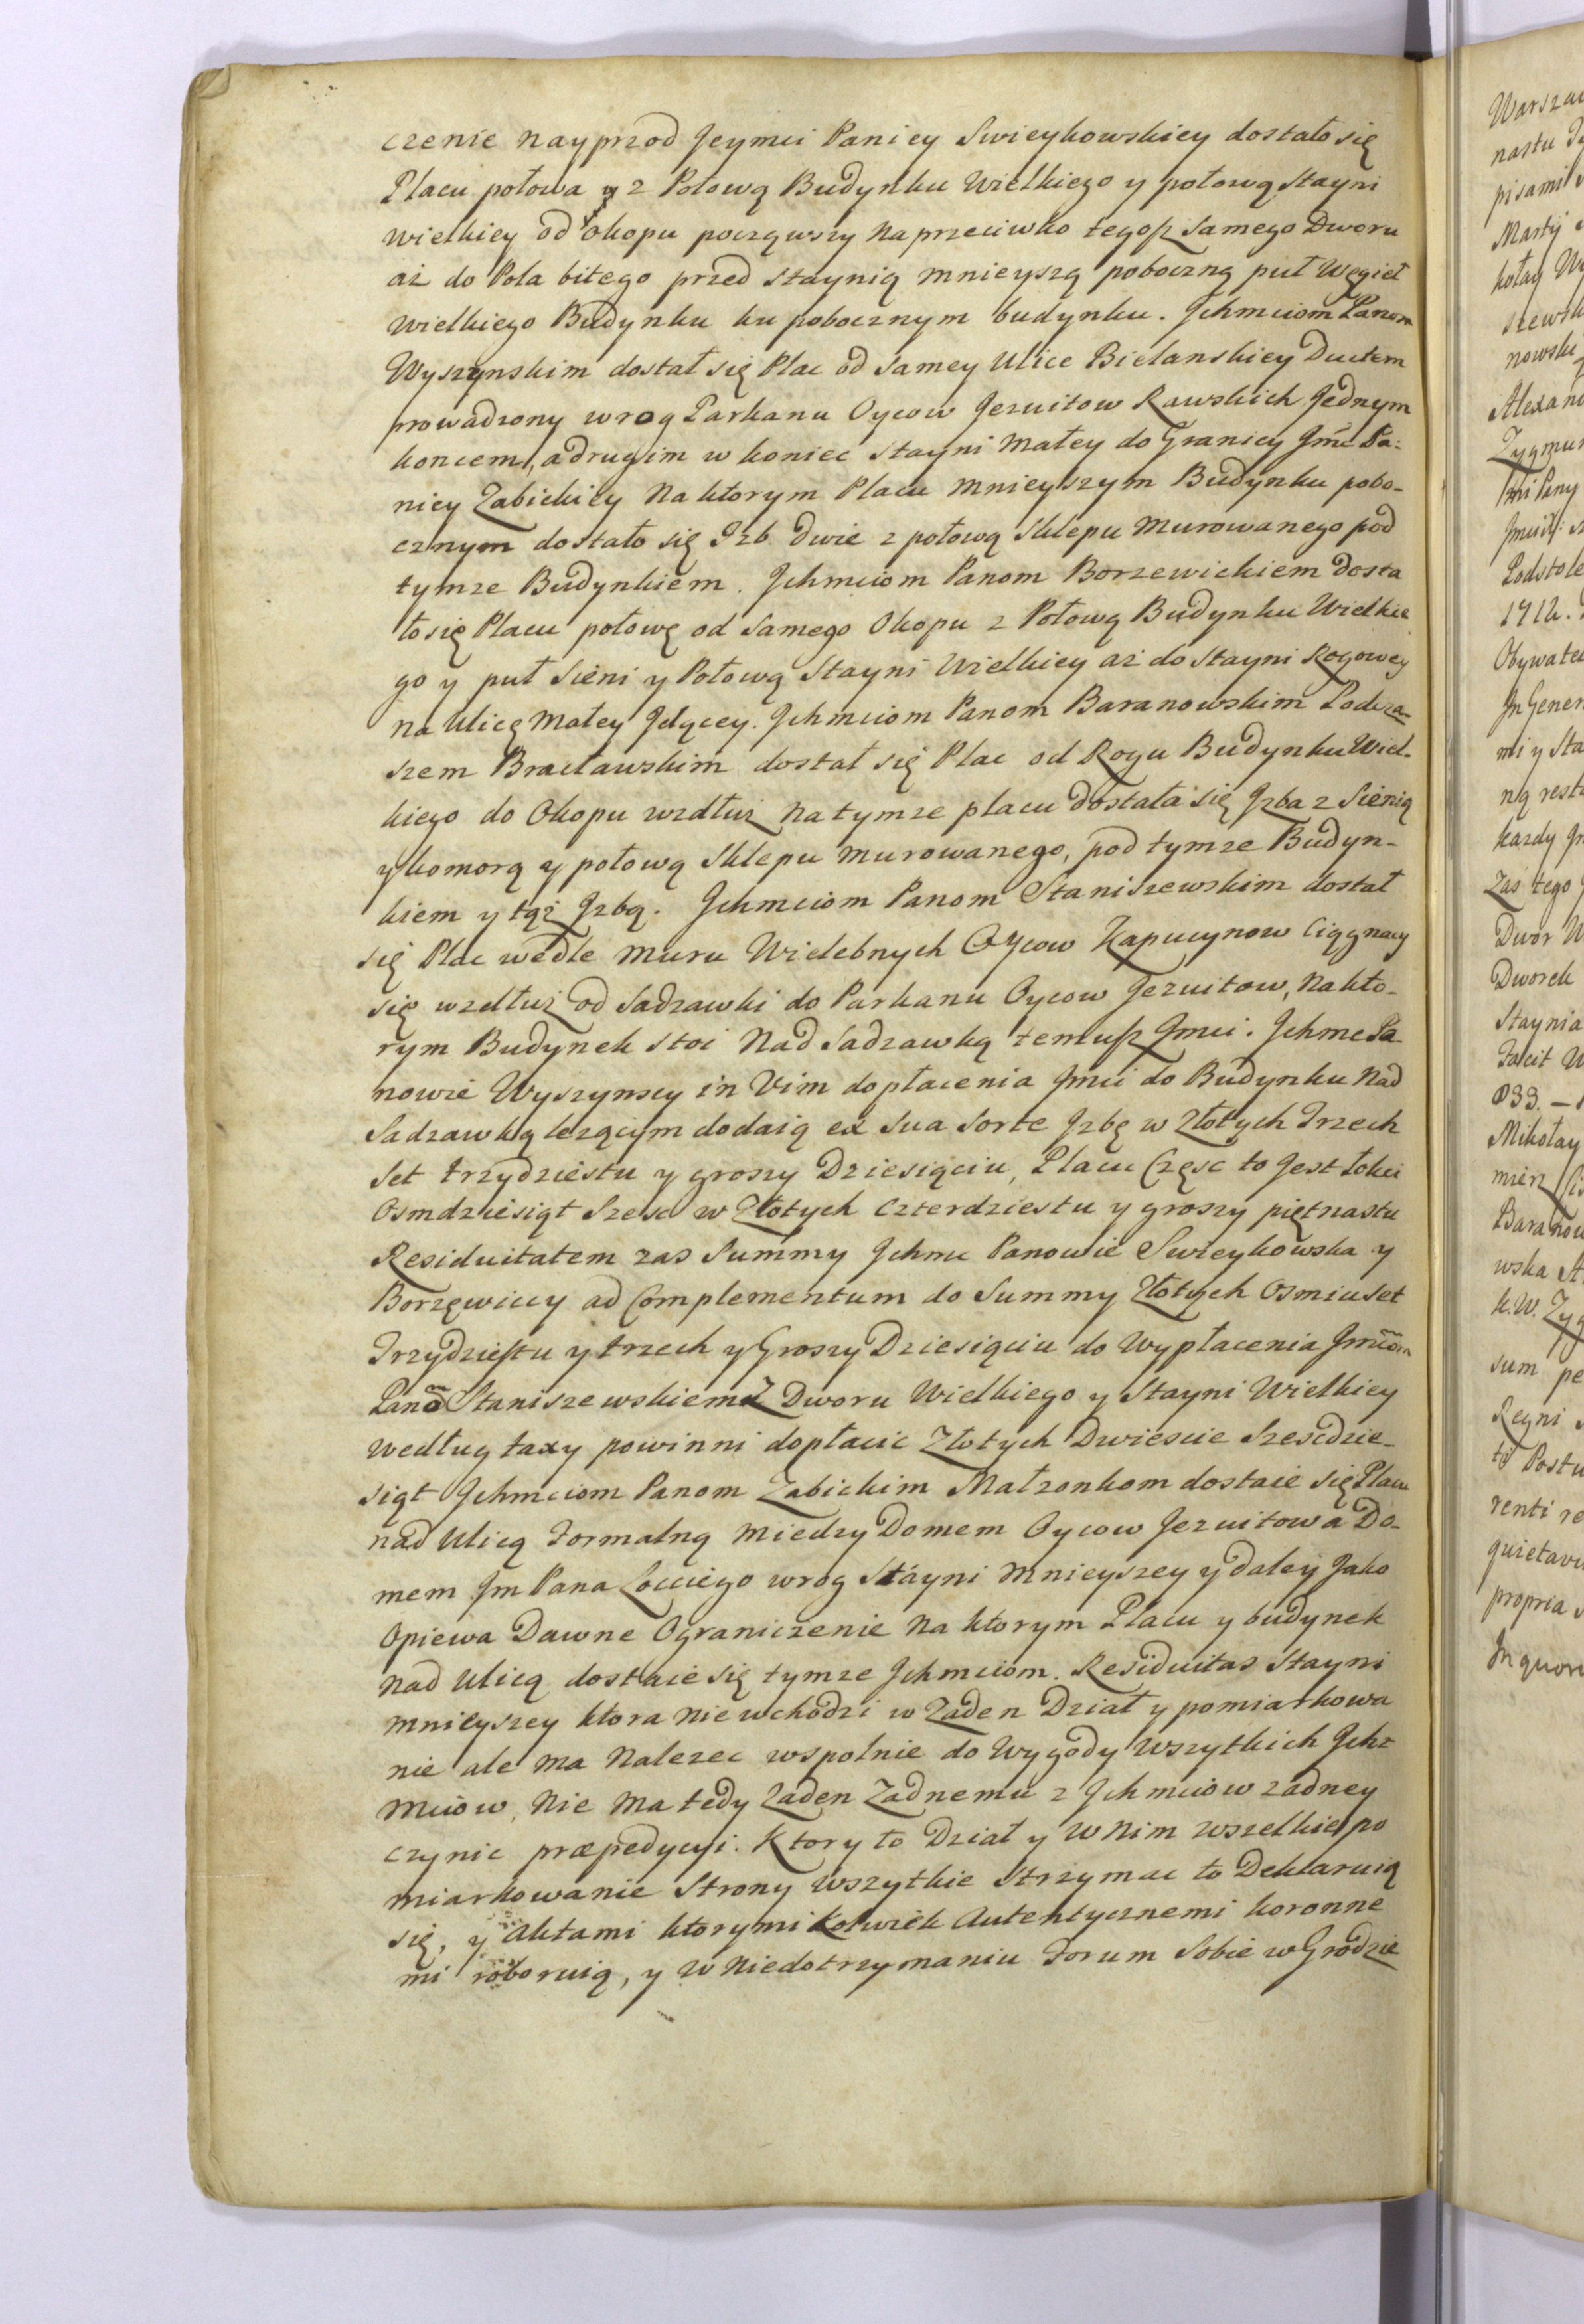 czenie nayprzod Jeymci Paniey Swieykowskiey dostało się
Placu połowa y z Połową Budynku Wielkiego y połową Stayni
wielkiey od okopu począwszy naprzeciwko tegosz samego Dworu
aż do Pola bitego przed Staynią mnieyszą poboczną puł Węgieł
wielkiego Budynku ku pobocznym budynku. Ichmciom Panom
Wyszynskim dostał się Plac od samey Ulice Bielanskiey Ductem
prowadzony wrog Parkanu Oycow Jezuitow Rawskich Jednym
koncem, a drugim w koniec Stayni Małey do Granicy Jmc Pa-
niey Zabickiey Na ktorym Placu mnieyszym Budynku pobo-
cznym dostało się Izb dwie z połową Sklepu murowanego pod
tymze Budynkiem. Ichmciom Panom Borzewickiem dosta
ło się Placu połowę od samego Okopu z Połową Budynku Wielkie
go y puł Sieni y Połową Stayni Wielkiey aż do Stayni Rogowey
na Ulicę Małey Idącey. Ichmciom Panom Baranowskim Podcza-
szem Bracławskim dostał się Plac od Rogu Budynku Wiel-
kiego do Okopu wzdłuż na tymze placu dostała się Izba z Sienią
y komorą y połową Sklepu murowanego, pod tymze Budyn-
kiem y tąż Izbą. Ichmciom Panom Staniszewskim dostał
się Plac wedle muru Wielebnych Oycow Kapucynow Ciągnący
się wzdłuż od Sadzawki do Parkanu Oycow Jezuitow, na kto-
rym Budynek stoi Nad Sadzawką temusz Jmci. Ichmc Pa-
nowie Wyszynscy in Vim dopłacenia Jmci do Budynku Nad
Sadzawką lezącym dodaią ex sua sorte Izbę w Złotych Trzech
set trzydziestu y groszy Dziesiąciu, Placu Częsc to Jest łokci
Osmdziesiąt Szesc w Złotych czterdziestu y groszy piętnastu
Residuitatem zas Summy Ichmc Panowie Swieykowska y
Borzęwiccy ad Complementum do Summy Złotych Osmiuset
Trzydziestu y trzech y Groszy Dziesiąciu do Wypłacenia Jmciom
Panom Staniszewskiem Z Dworu Wielkiego y Stayni Wielkiey
według taxy powinni dopłacic Złotych Dwiescie Szescdzie-
siąt Ichmciom Panom Zabickim Małzonkom dostaie się Placu
nad Ulicą Formalną miedzy Domem Oycow Jezuitow a Do-
mem Jm Pana Locciego wrog Stayni mnieyszey y daley Jako
Opiewa Dawne Ograniczenie na ktorym Placu y budynek
nad Ulicą dostaie się tymze Ichmciom. Residuitas Stayni
mnieyszey ktora nie wchodzi w Zaden Dział y pomiarkowa
nie ale ma Nalezec wspolnie do Wygody Wszytkich Ich
Mciow, Nie ma tedy Zaden Zadnemu z Ichmciow zadney
czynic præpedycyi. Ktory to Dział y w nim wszelkie po
miarkowanie Strony Wszytkie Strzymac to Deklaruią
się, y Aktami ktorymikolwiek Autentycznemi koronne
mi roboruią, y w Niedotrzymaniu Forum Sobie w Grodzie